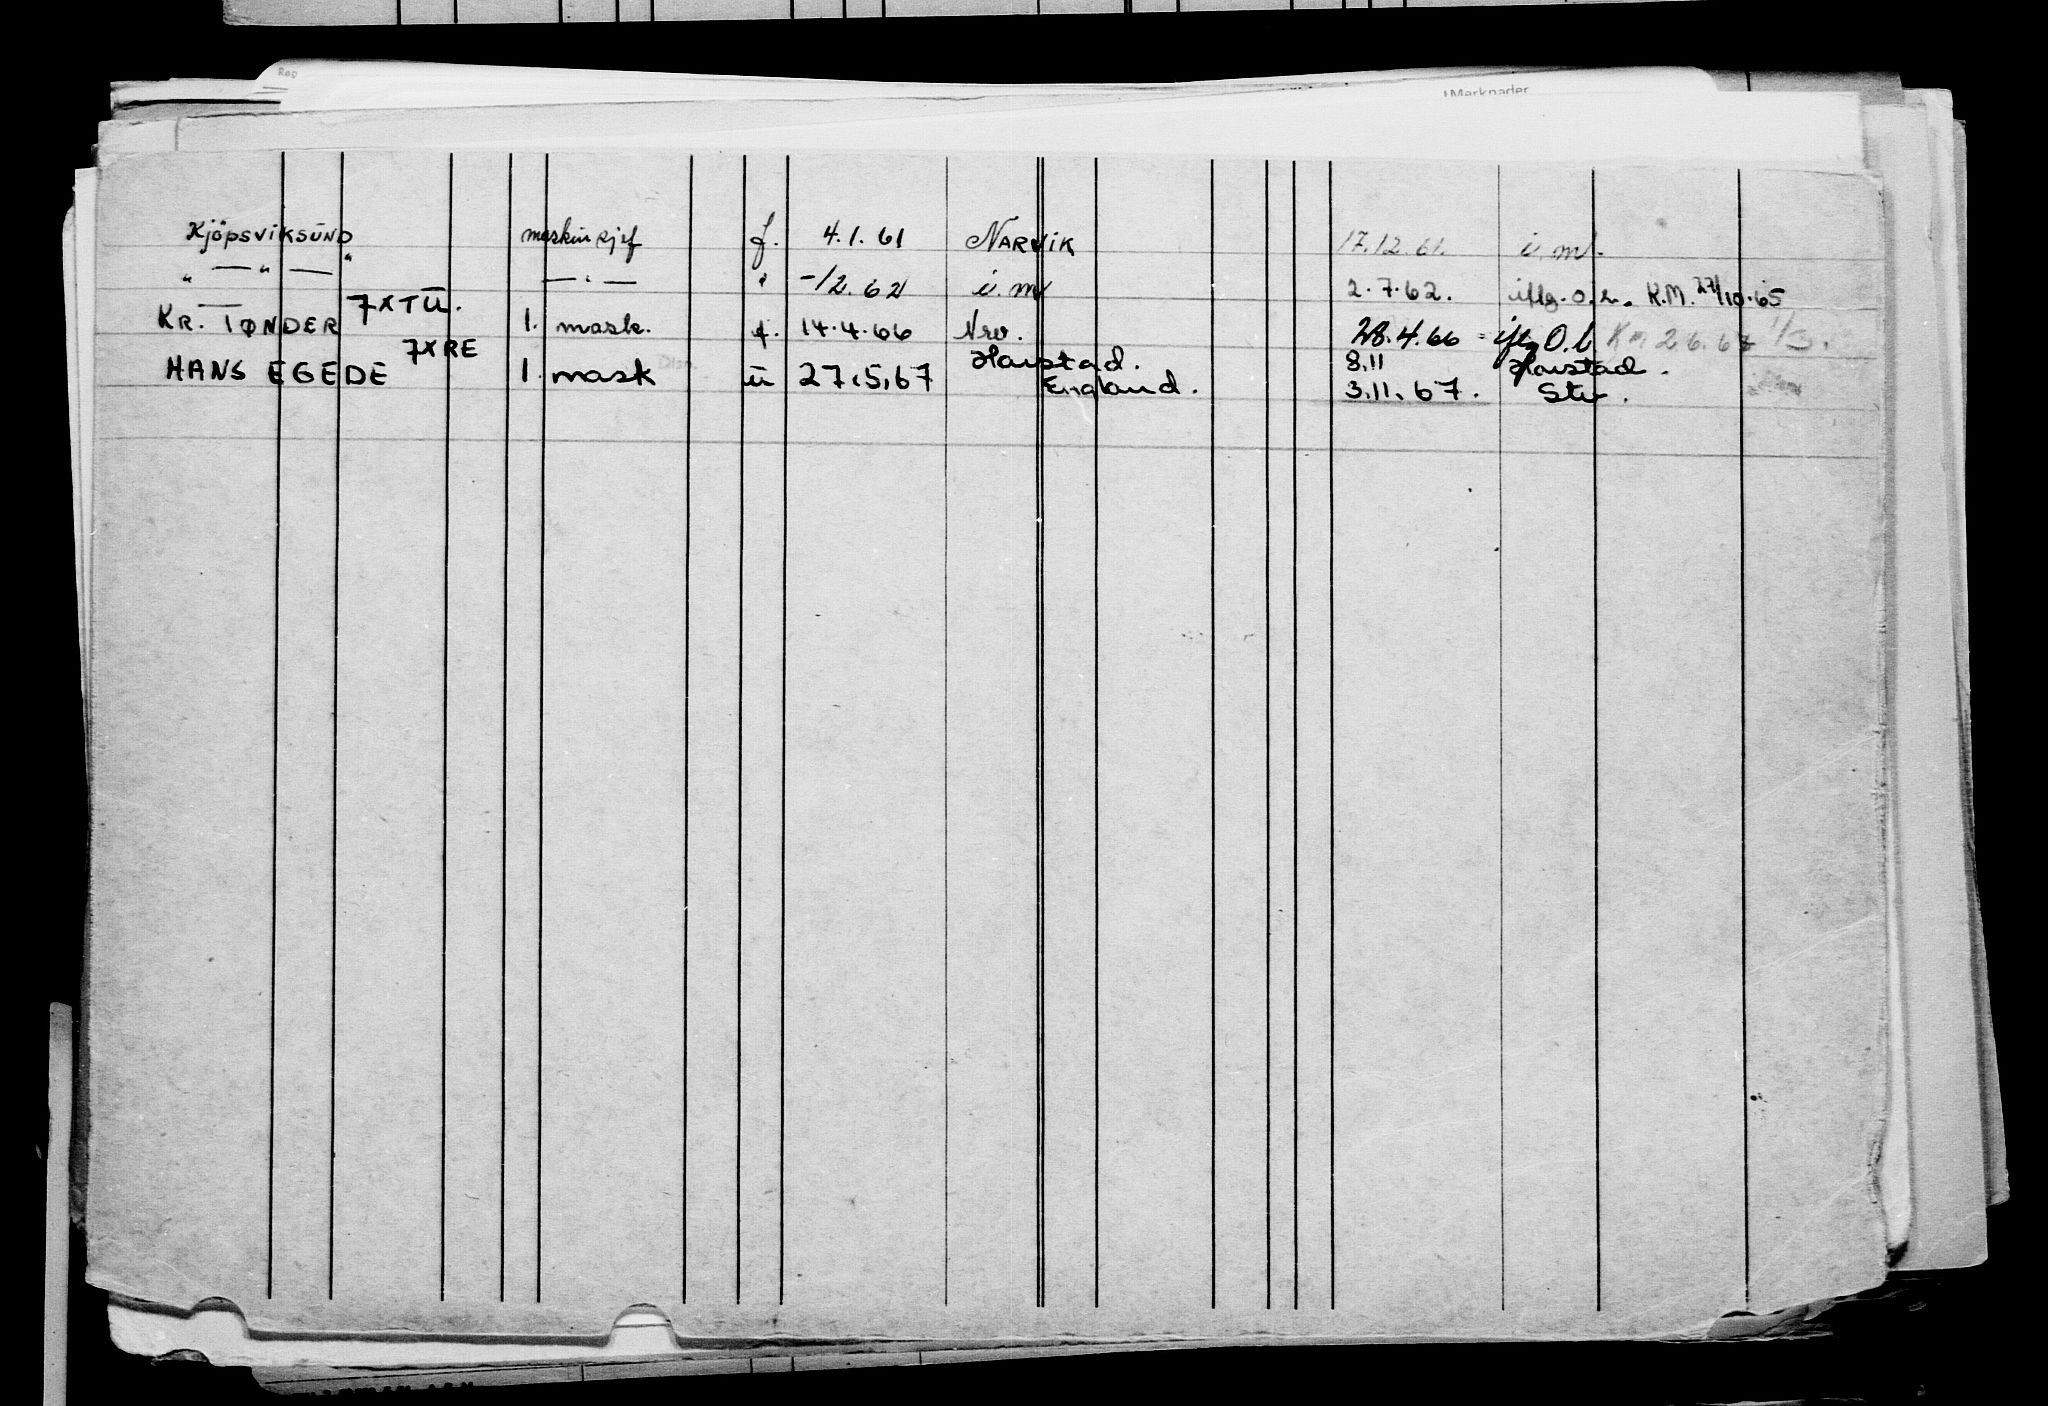 Reg
Merknader
Kjöpsviksund maskinsjef f. 4.1.61 NARVIK 17.12.61. i.m.
" — " — " — " — " -/2.62 i.m 2.7.62. iflg. o.l. K.M. 27/10.65
KR. TØNDER 7XTU. 1. mask. f. 14.4.66 Nrv. 28.4.66 iflg O.l KM 26.67 1/3.
HANS EGEDE 7XRE 1. mask u 27.5.67 Harstad. 3.11 Harstad.
England. 3.11.67. Stv.